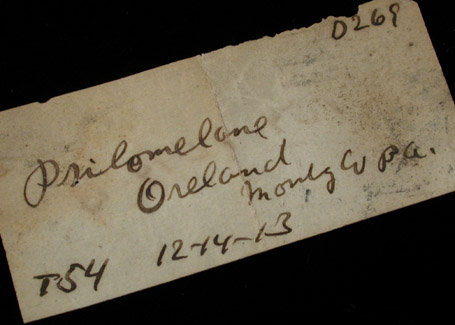 D269
Psilomelane
Oreland
Montg Co Pa.
T54 12-14-13